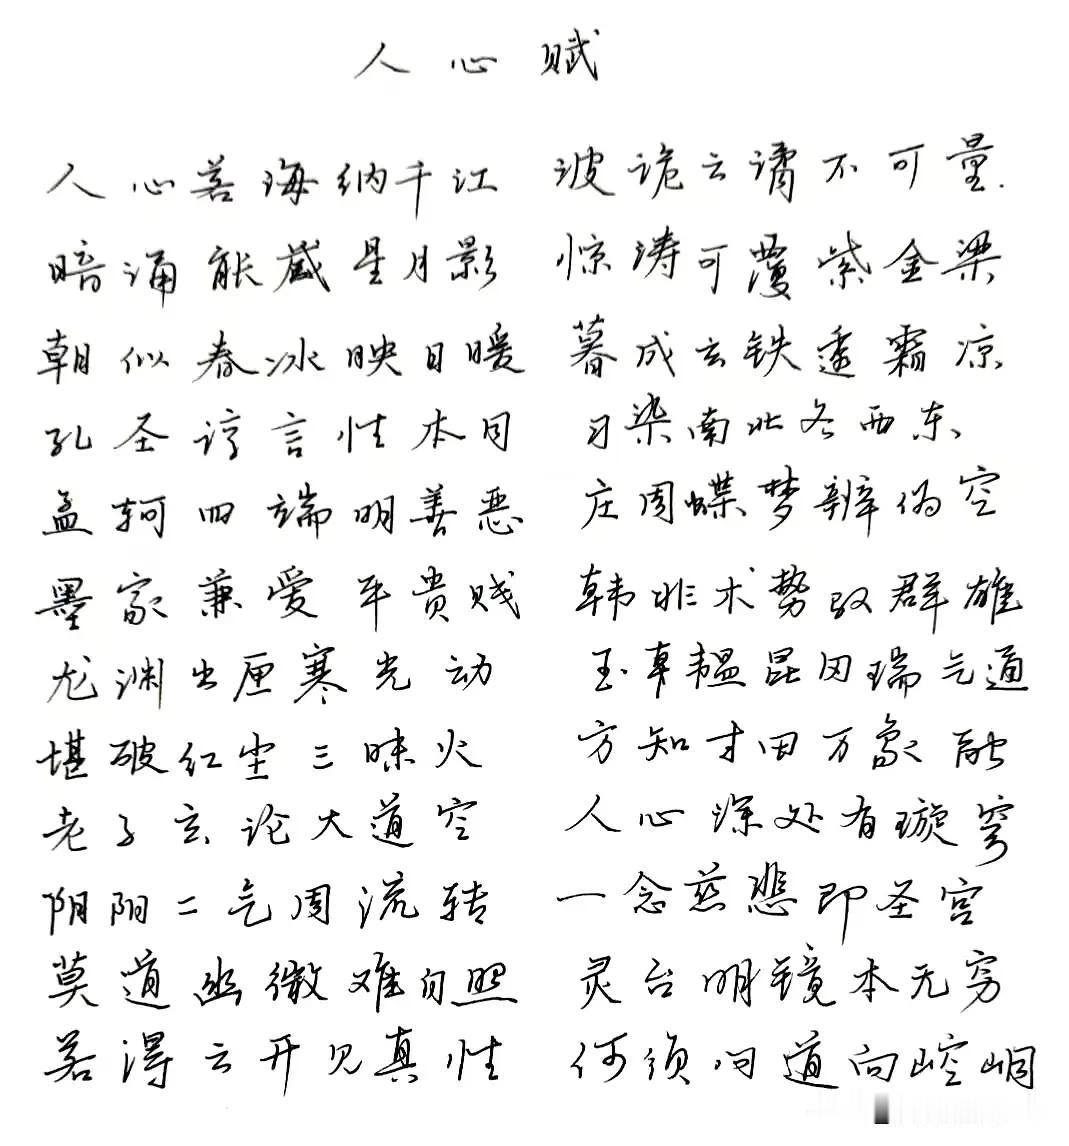 人心赋
人心若海纳千江 波诡云谲不可量.
暗涌能藏星月影 惊涛可覆紫金梁
朝似春冰映日暖 暮成玄铁透霜凉
孔圣谆言性本同 习染南北各西东
孟轲四端明善恶 庄周蝶梦辨伪空
墨家兼爱平贵贱 韩非术势驭群雄
龙渊出匣寒光动 玉韫昆冈瑞气通
堪破红尘三昧火 方知寸田万象融
老子玄论大道空 人心深处有璇穹
阴阳二气周流转 一念慈悲即圣宫
莫道幽微难自照 灵台明镜本无穷
若得云开见真性 何须问道向崆峒